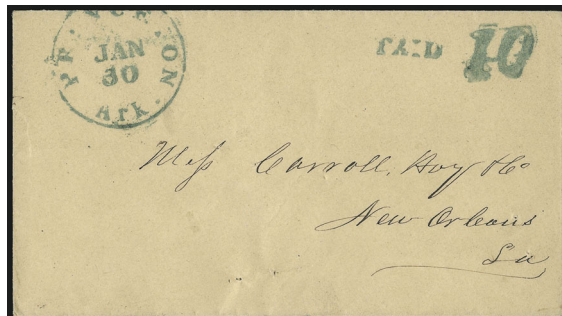 PRINCETON
JAN
30
Ark.
PAID 10
Mess Carroll, Hoy & Co
New Orleans
La